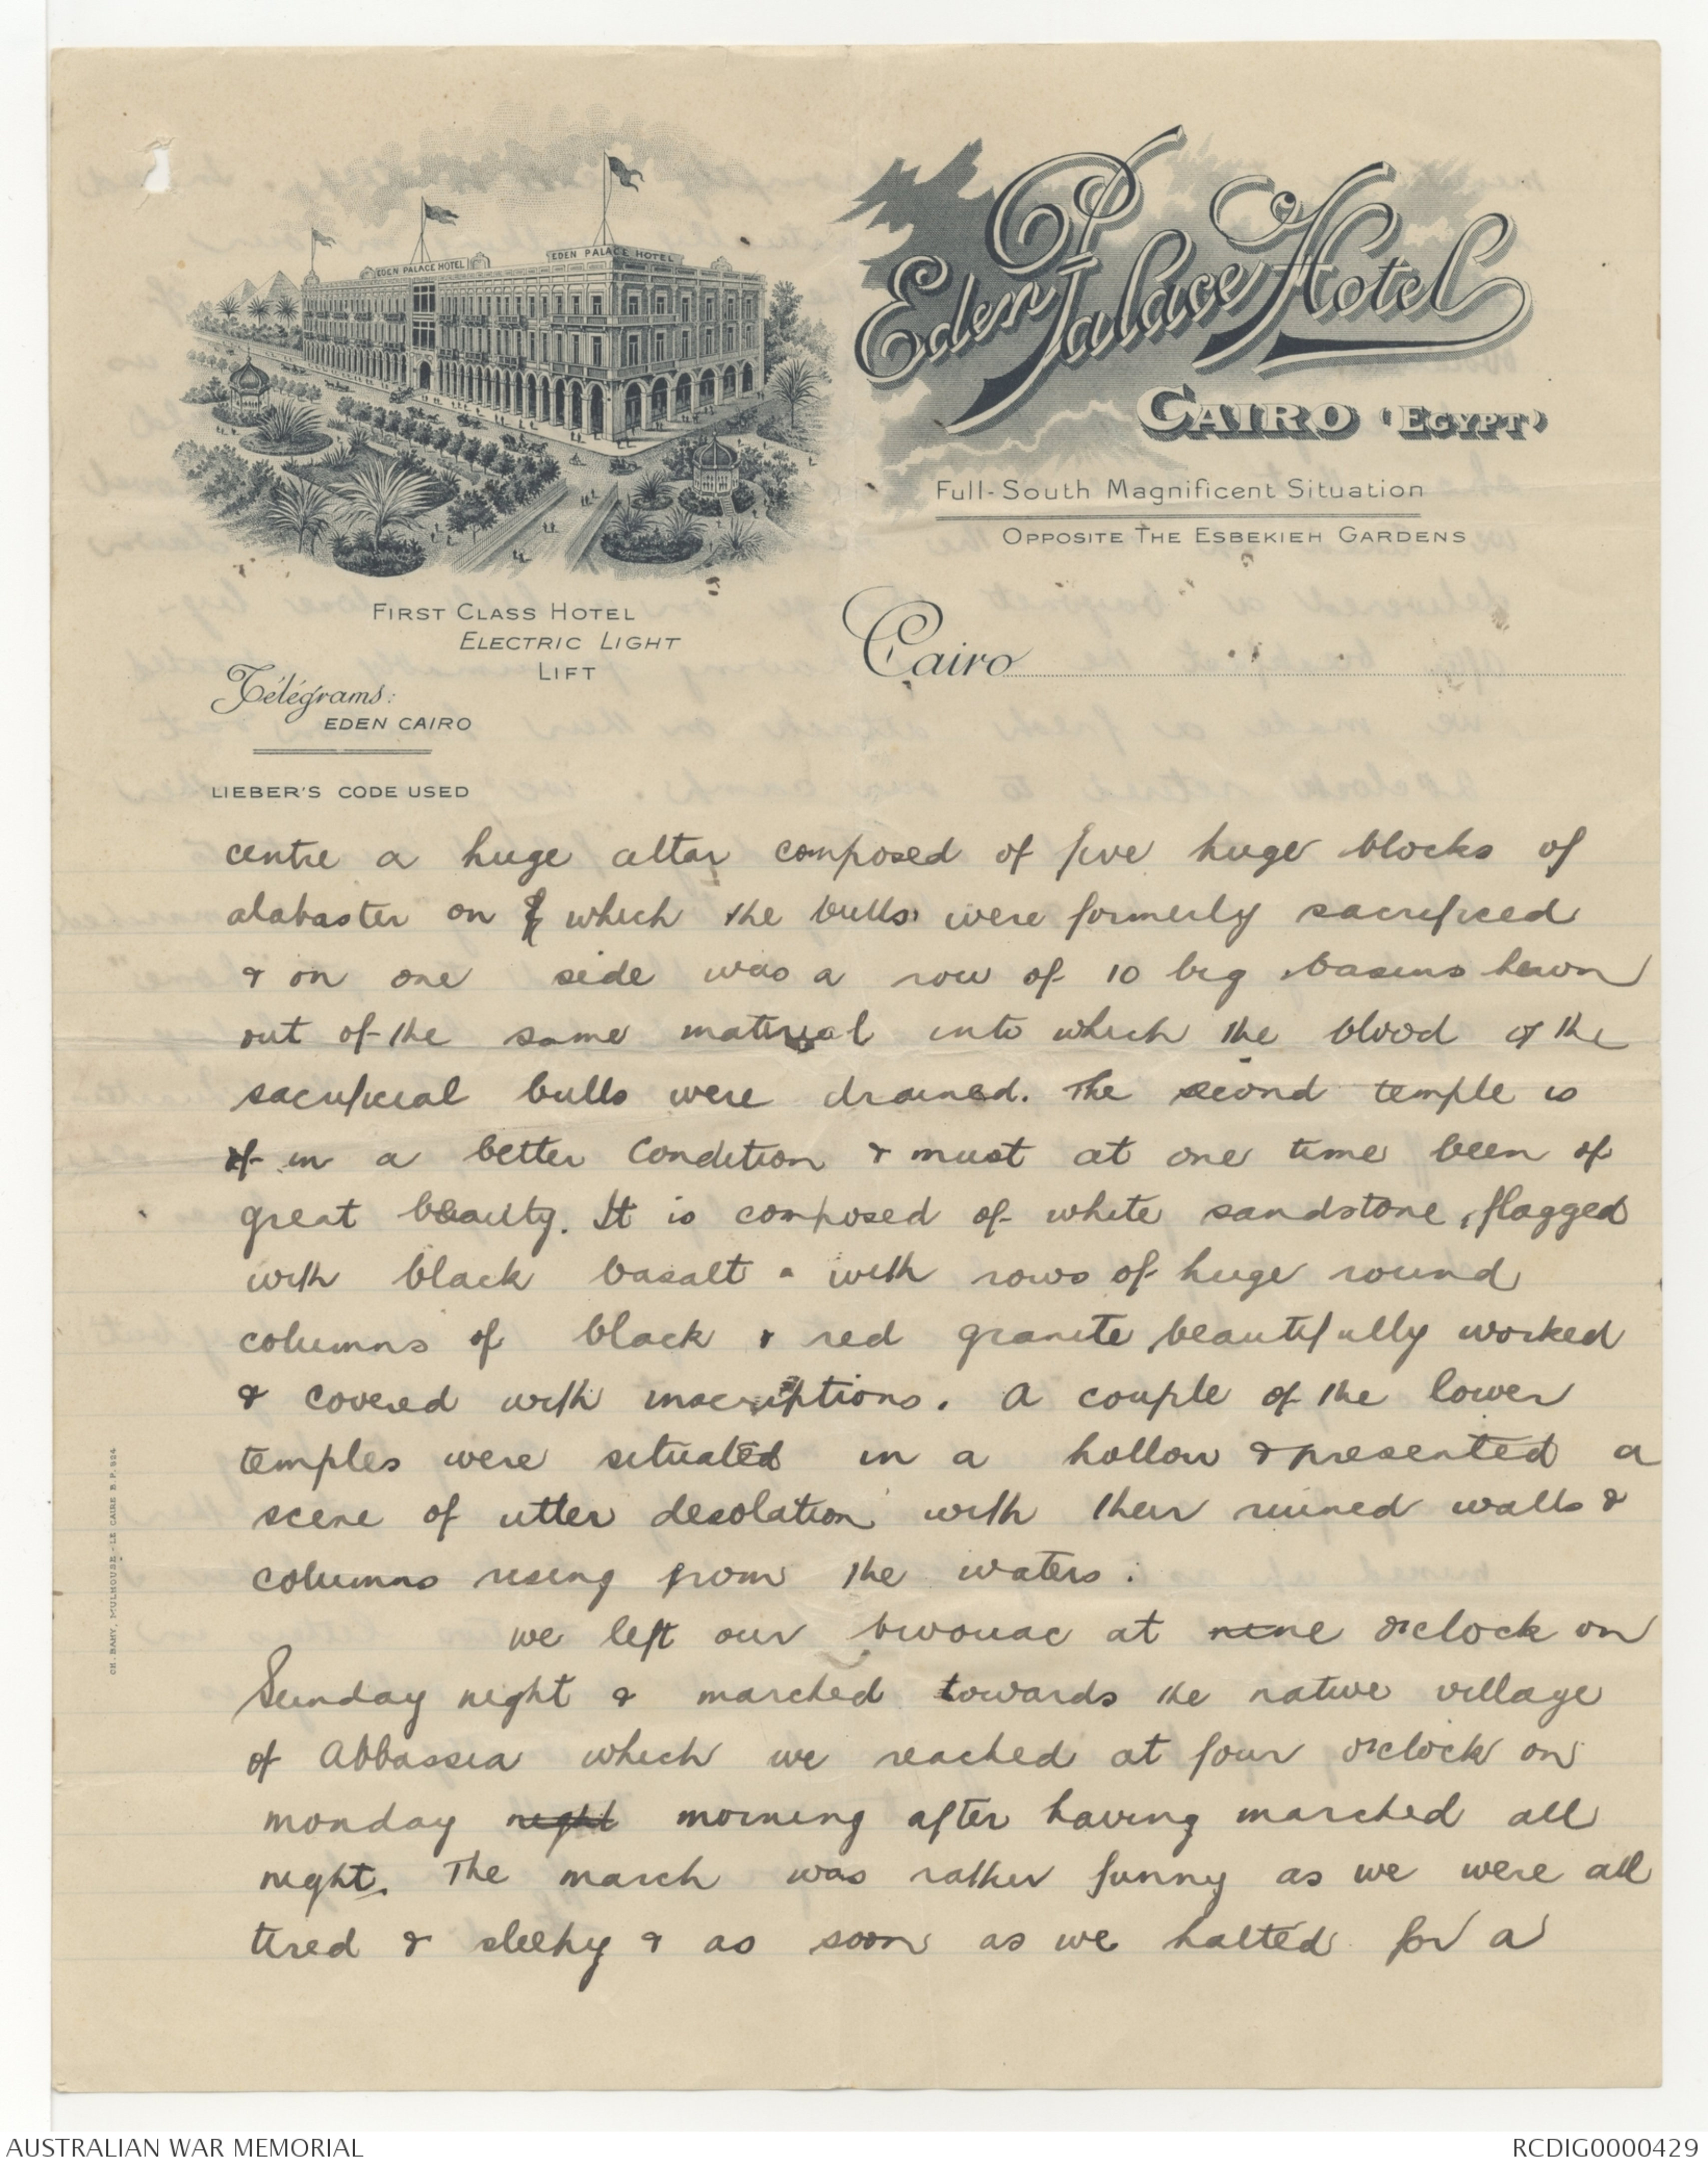 EDEN PALACE HOTEL
EDEN PALACE HOTEL
Eden Palace Hotel
CAIRO (EGYPT)
Full-South Magnificent Situation
OPPOSITE THE ESBEKIEH GARDENS
FIRST CLASS HOTEL
ELECTRIC LIGHT
LIFT
Télégrams:
EDEN CAIRO
LIEBER'S CODE USED
Cairo
centre a huge altar composed of five huge blocks of
alabaster on which the bulls were formerly sacrificed
& on one side was a row of 10 big basins hewn
out of the same material into which the blood of the
sacrificial bulls were drained. The second temple is
in a better condition & must at one time been of
great beauty. It is composed of white sandstone, flagged
with black basalt & with rows of huge round
columns of black & red granite beautifully worked
& covered with inscriptions. A couple of the lower
temples were situated in a hollow & presented a
scene of utter desolation with their ruined walls &
columns rising from the waters.
we left our bivouac at nine o'clock on
Sunday night & marched towards the native village
of Abbassia which we reached at four o'clock on
monday night morning after having marched all
night. The march was rather funny as we were all
tired & sleepy & as soon as we halted for a
CH. BAHY, MULHOUSE - LE CAIRE B.P. 924
AUSTRALIAN WAR MEMORIAL
RCDIG0000429